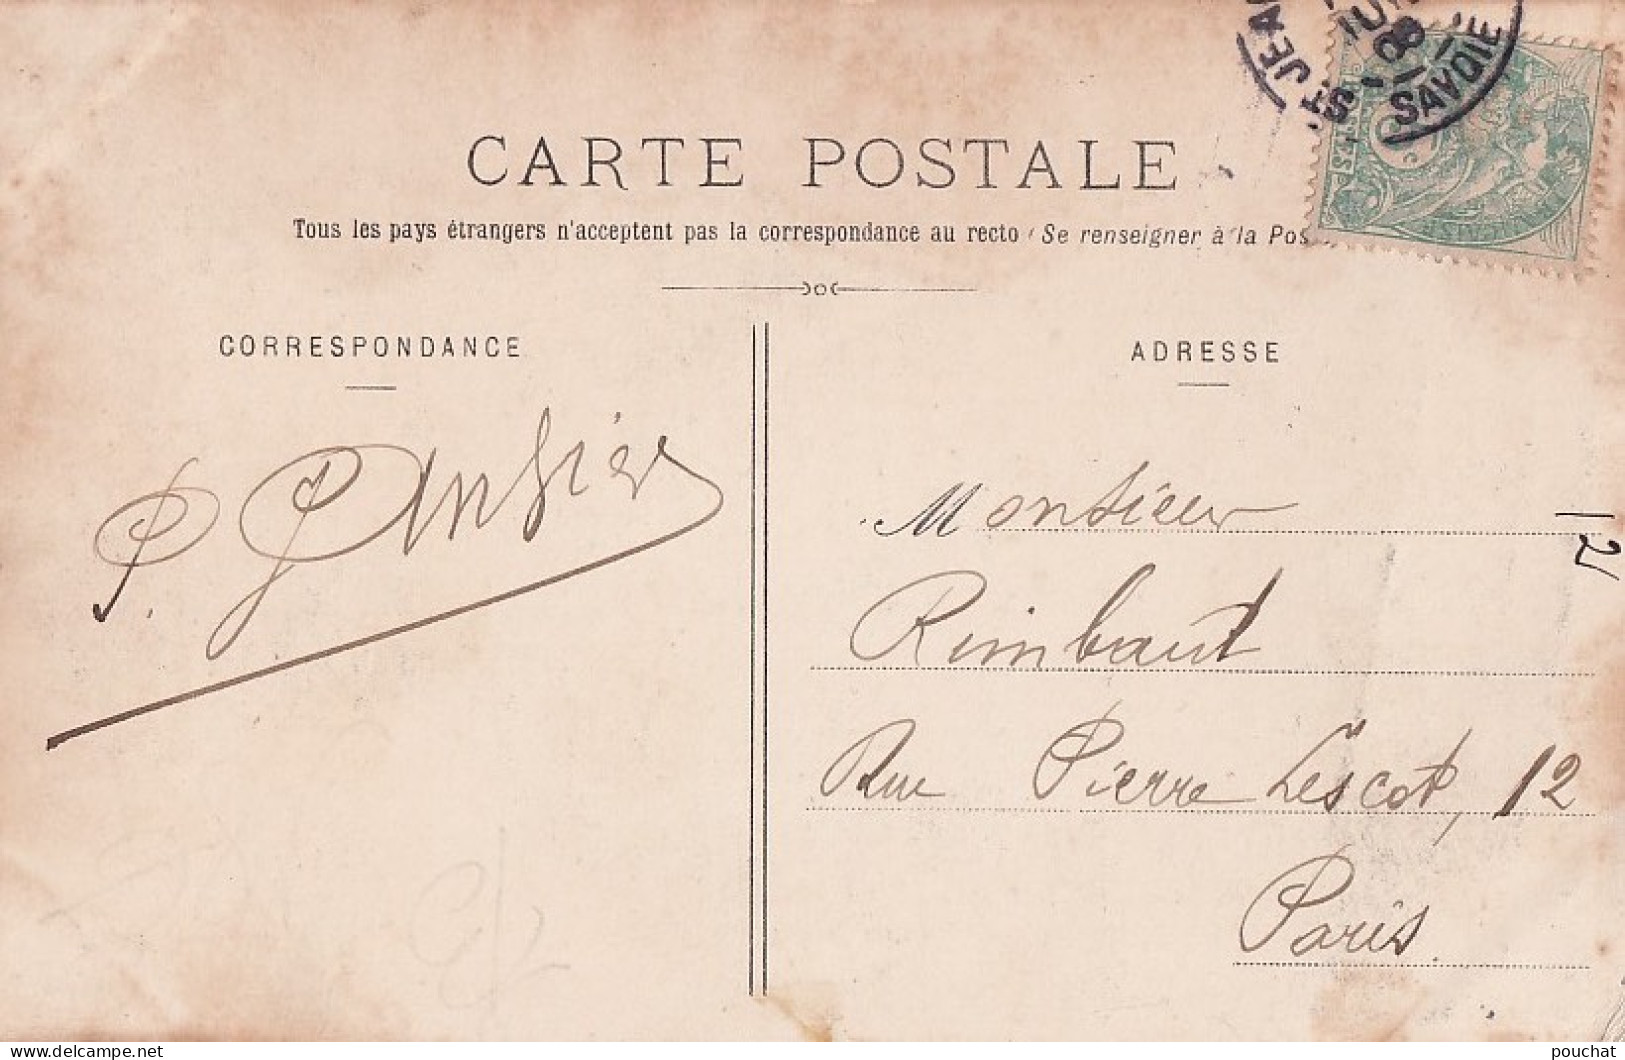 CARTE POSTALE
Tous les pays étrangers n'acceptent pas la correspondance au recto (Se renseigner à la Pos
ST JEA
08
SAVOIE
5
CORRESPONDANCE
ADRESSE
P.
Monsieur
12
Rimbaut
Rue Pierre Lescot, 12
Paris.
pouchat